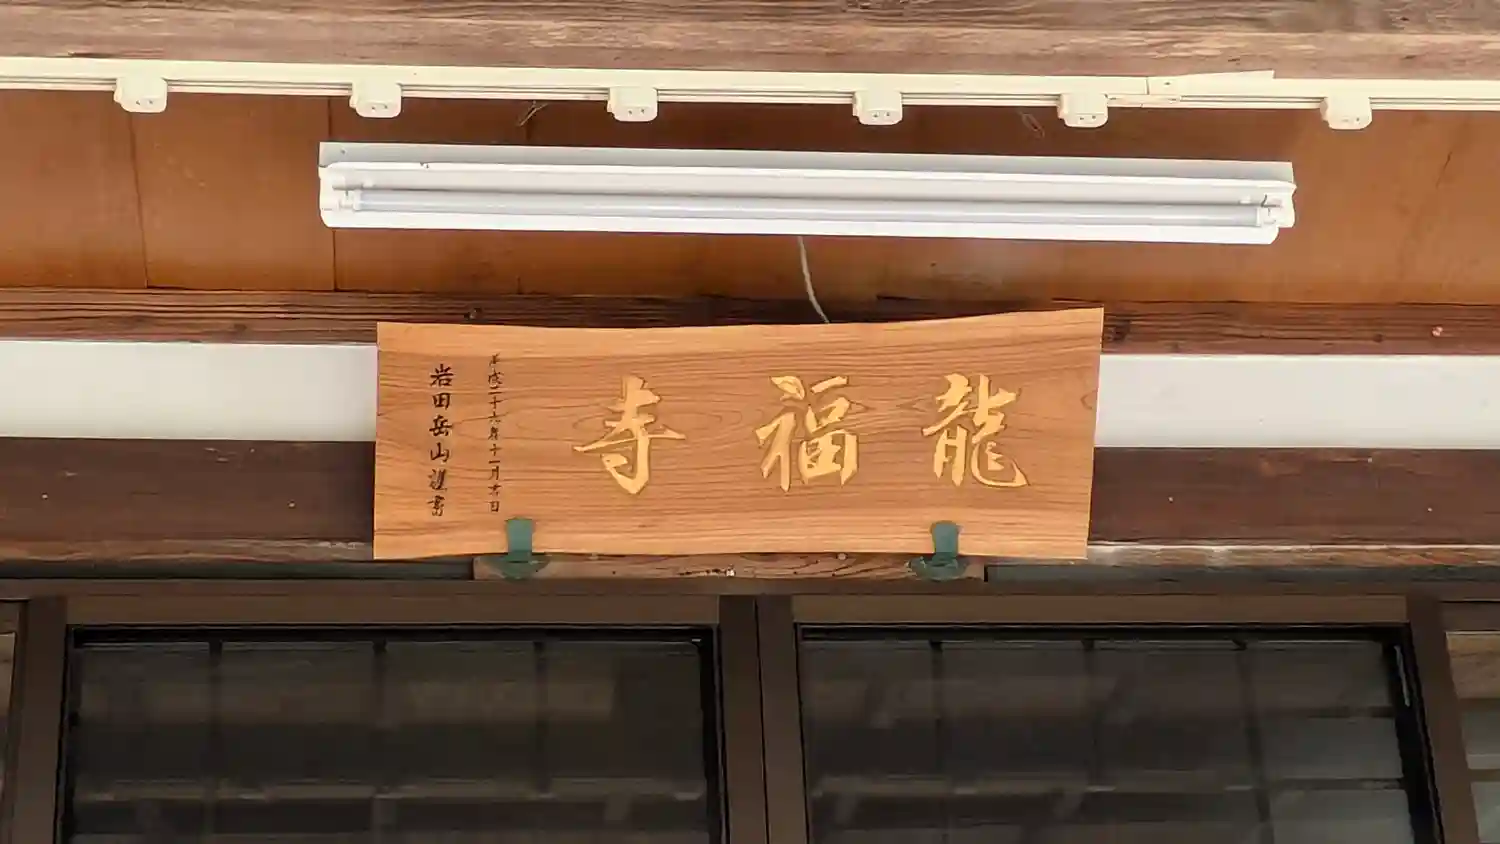 龍福寺
平成二十六年十一月吉日
岩田岳山謹書